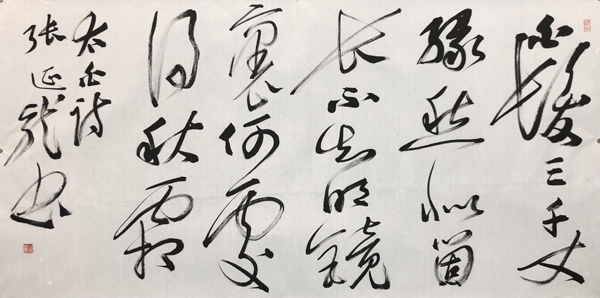 白髮三千丈
緣愁似箇
長不知明鏡
裏何處
得秋霜
太白詩
張延龍書